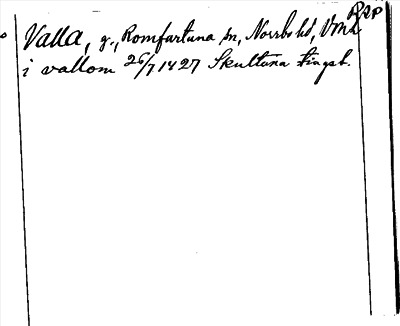 Valla, g., Romfartuna sn, Norrbo hd, Vml
i vallom 26/7 1427 Skultuna tingsb.